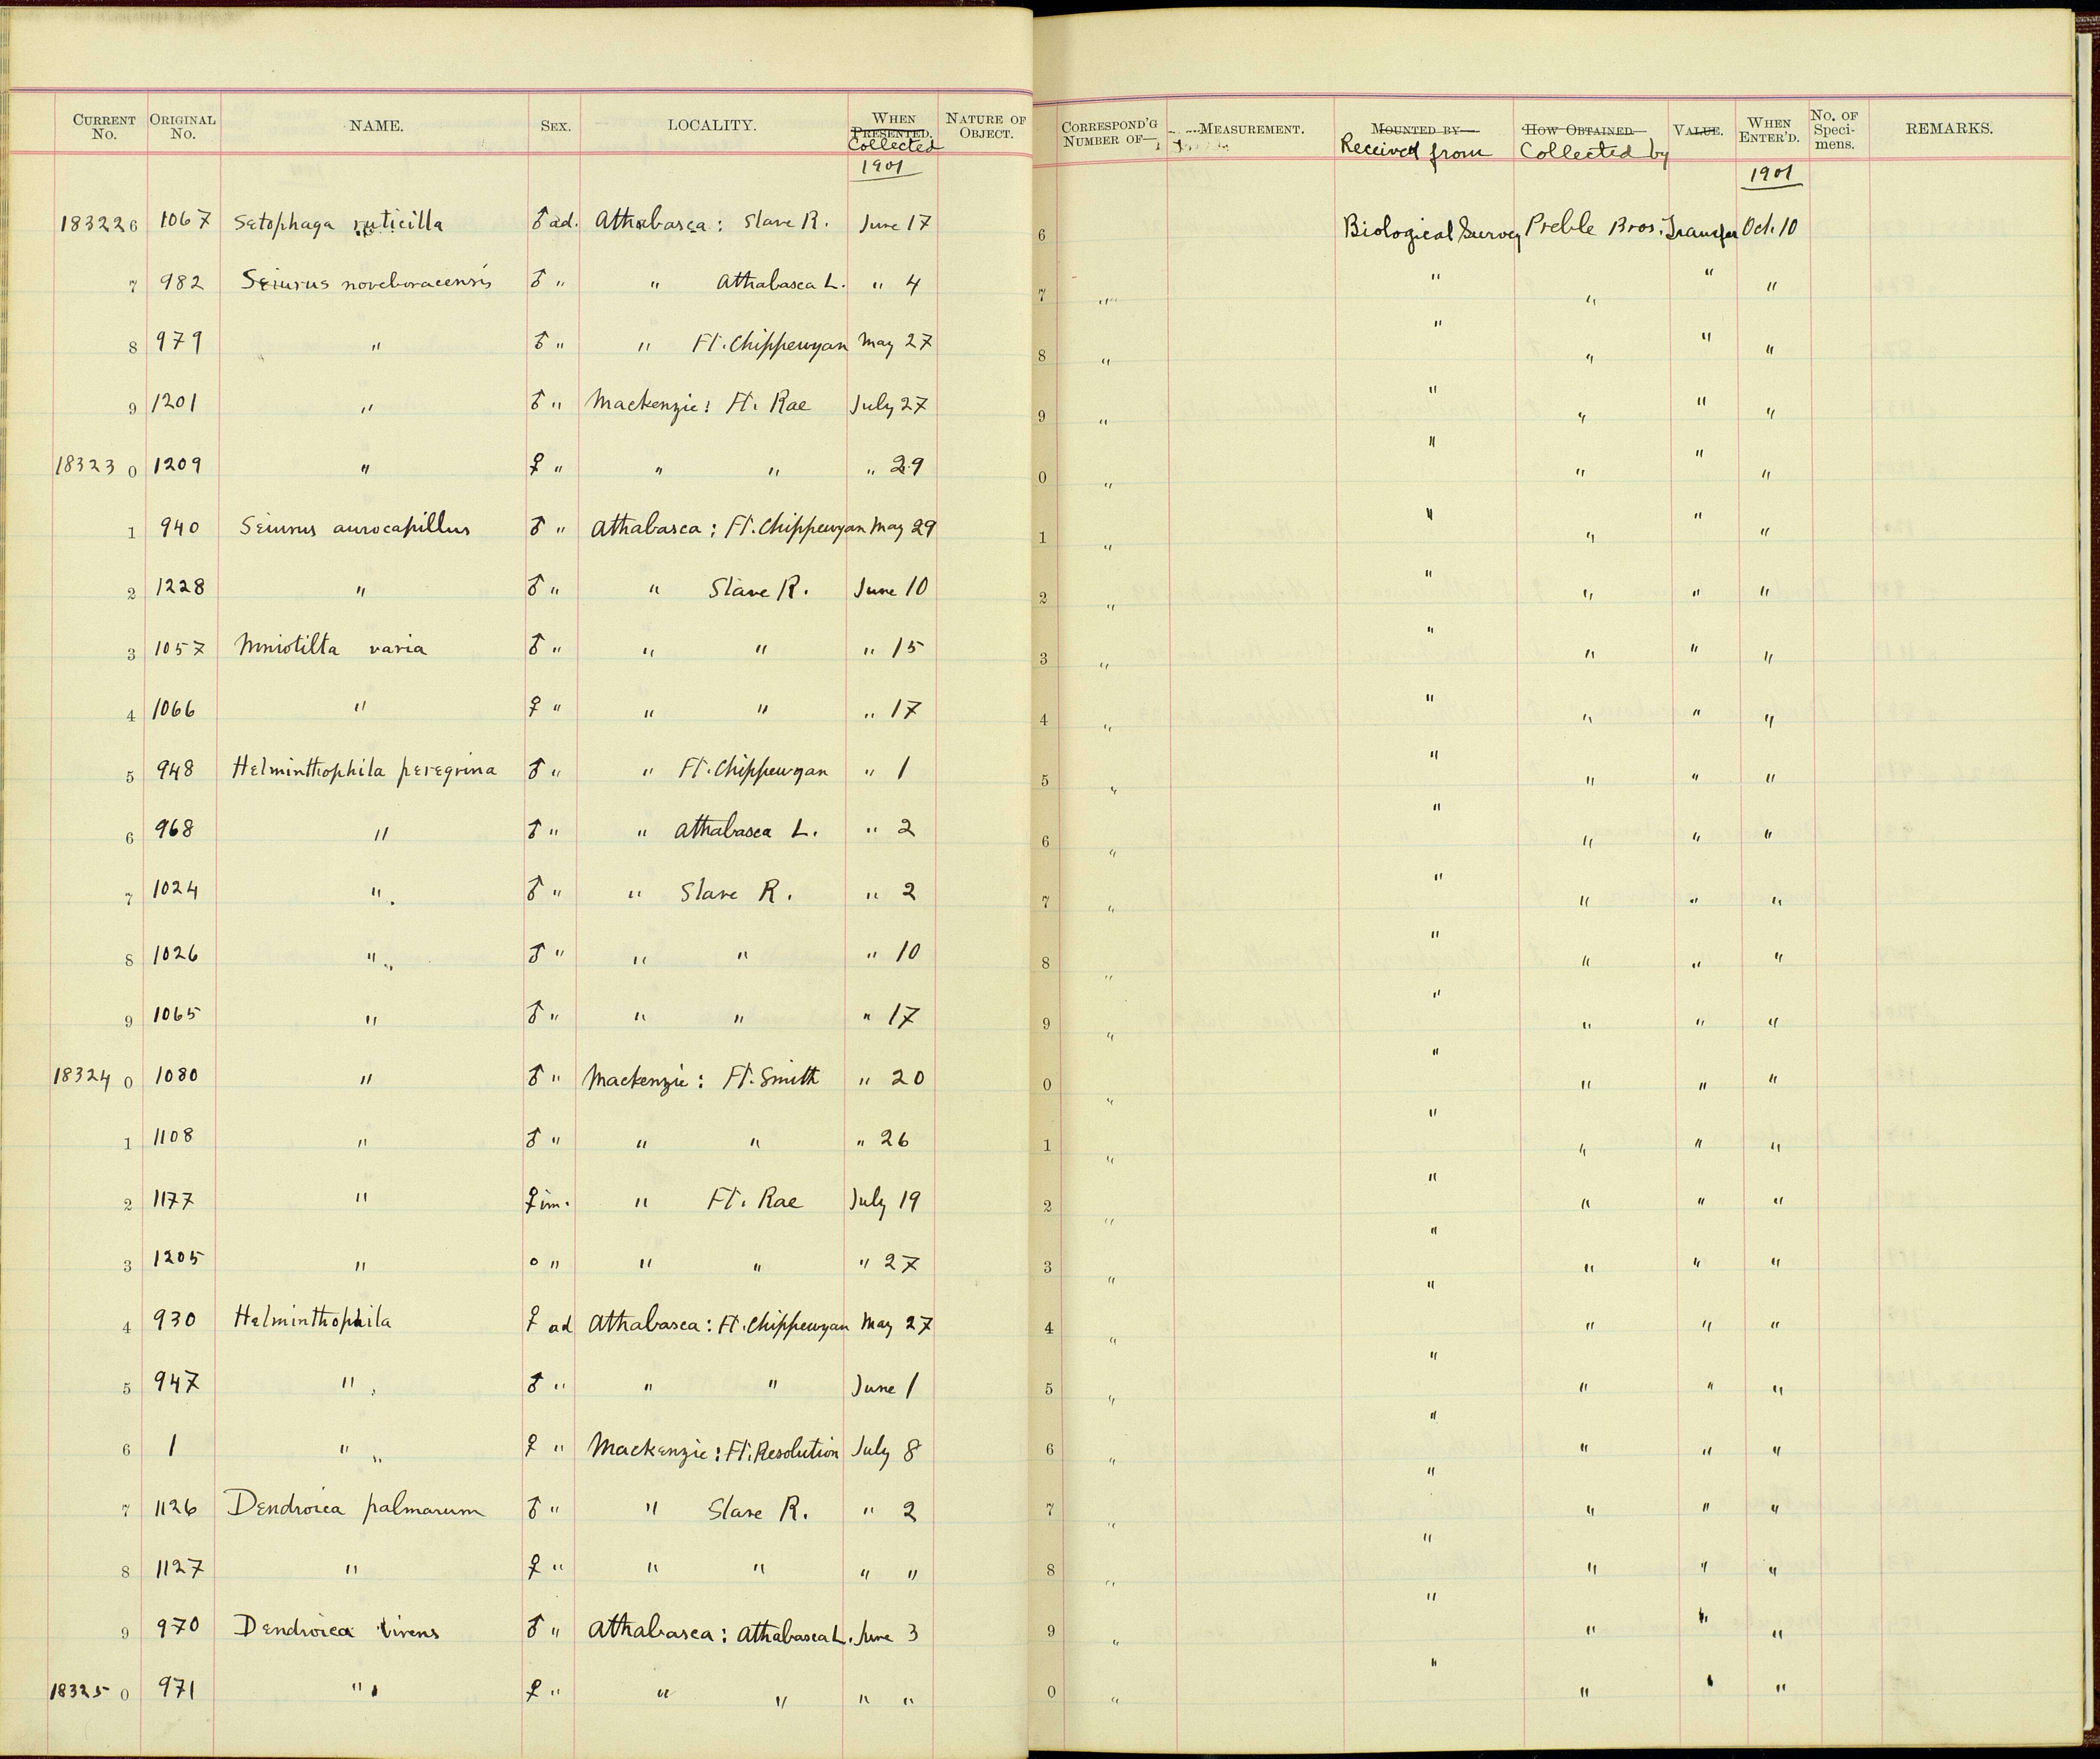 CURRENT No. ORIGINAL No. NAME. SEX. LOCALITY. WHEN PRESENTED. Collected NATURE OF OBJECT. CORRESPOND'G NUMBER OF— MEASUREMENT. MOUNTED BY— Received from HOW OBTAINED— Collected by VALUE. WHEN ENTER'D. No. OF Speci-mens. REMARKS.
1901 1901
183226 1067 Setophaga ruticilla ♂ ad. Athabasca : Slave R. June 17 6 Biological Survey Preble Bros. Transfer Oct. 10
7 982 Seiurus noveboracensis ♂ " " Athabasca L. " 4 7 " " " " "
8 979 " ♂ " " Ft. Chippewyan May 27 8 " " " " "
9 1201 " ♂ " Mackenzie : Ft. Rae July 27 9 " " " " "
18323 0 1209 " ♀ " " " " 29 0 " " " " "
1 940 Seiurus aurocapillus ♂ " Athabasca ; Ft. Chippewyan May 29 1 " " " " "
2 1228 " ♂ " " Slave R. June 10 2 " " " " "
3 1057 Mniotilta varia ♂ " " " " 15 3 " " " " "
4 1066 " ♀ " " " " 17 4 " " " " "
5 948 Helminthophila peregrina ♂ " " Ft. Chippewyan " 1 5 " " " " "
6 968 " ♂ " " Athabasca L. " 2 6 " " " " "
7 1024 " ♂ " " Slave R. " 2 7 " " " " "
8 1026 " ♂ " " " " 10 8 " " " " "
9 1065 " ♂ " " " " 17 9 " " " " "
18324 0 1080 " ♂ " Mackenzie : Ft. Smith " 20 0 " " " " "
1 1108 " ♂ " " " " 26 1 " " " " "
2 1177 " ♀ im. " Ft. Rae July 19 2 " " " " "
3 1205 " o " " " " 27 3 " " " " "
4 930 Helminthophila ♀ ad Athabasca : Ft. Chippewyan May 27 4 " " " " "
5 947 " ♂ " " " June 1 5 " " " " "
6 1 " ♀ " Mackenzie : Ft. Resolution July 8 6 " " " " "
7 1126 Dendroica palmarum ♂ " " Slave R. " 2 7 " " " " "
8 1127 " ♀ " " " " " 8 " " " " "
9 970 Dendroica virens ♂ " Athabasca : Athabasca L. June 3 9 " " " " "
18325 0 971 " ♀ " " " " " 0 " " " " "